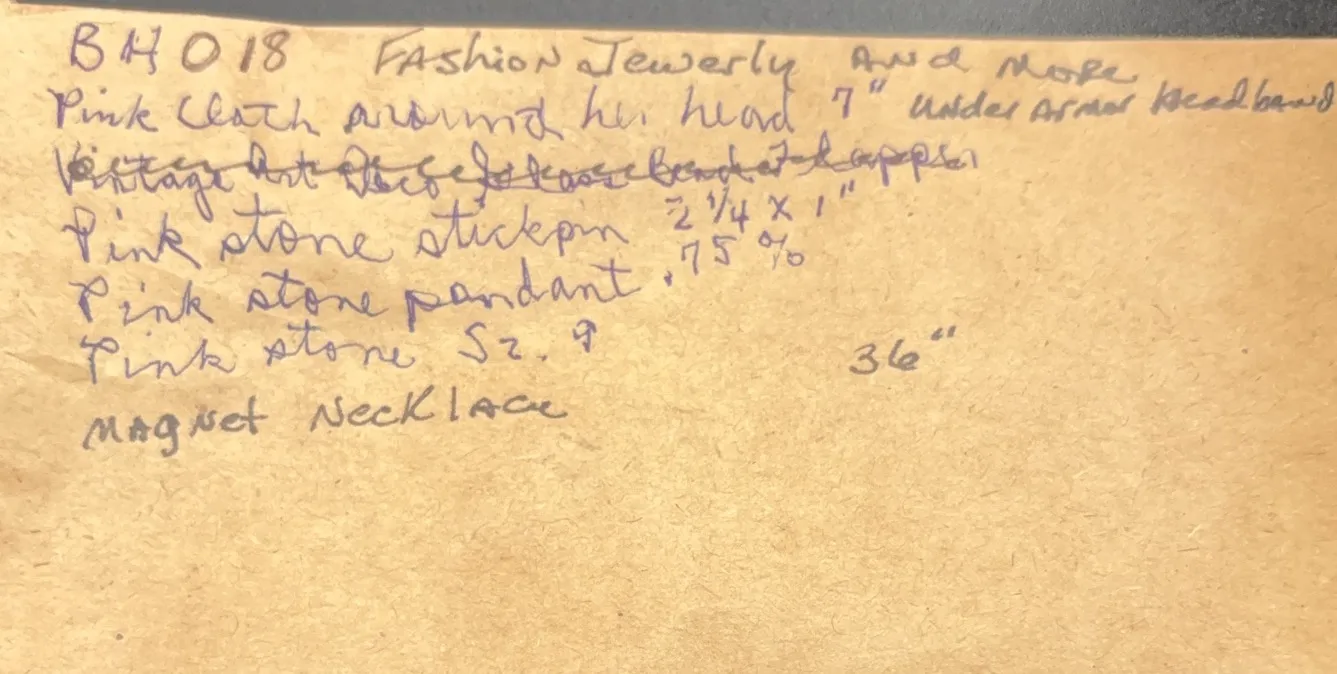 BH 018 FAshion Jewerly And More
Pink Cloth around her head 7" Under Armor Headband
Vintage Art Deco
Pink stone stickpin 2 1/4 x 1"
Pink stone pandant .75 %
Pink stone Sz. 9
36"
MAgNet NeckLAce